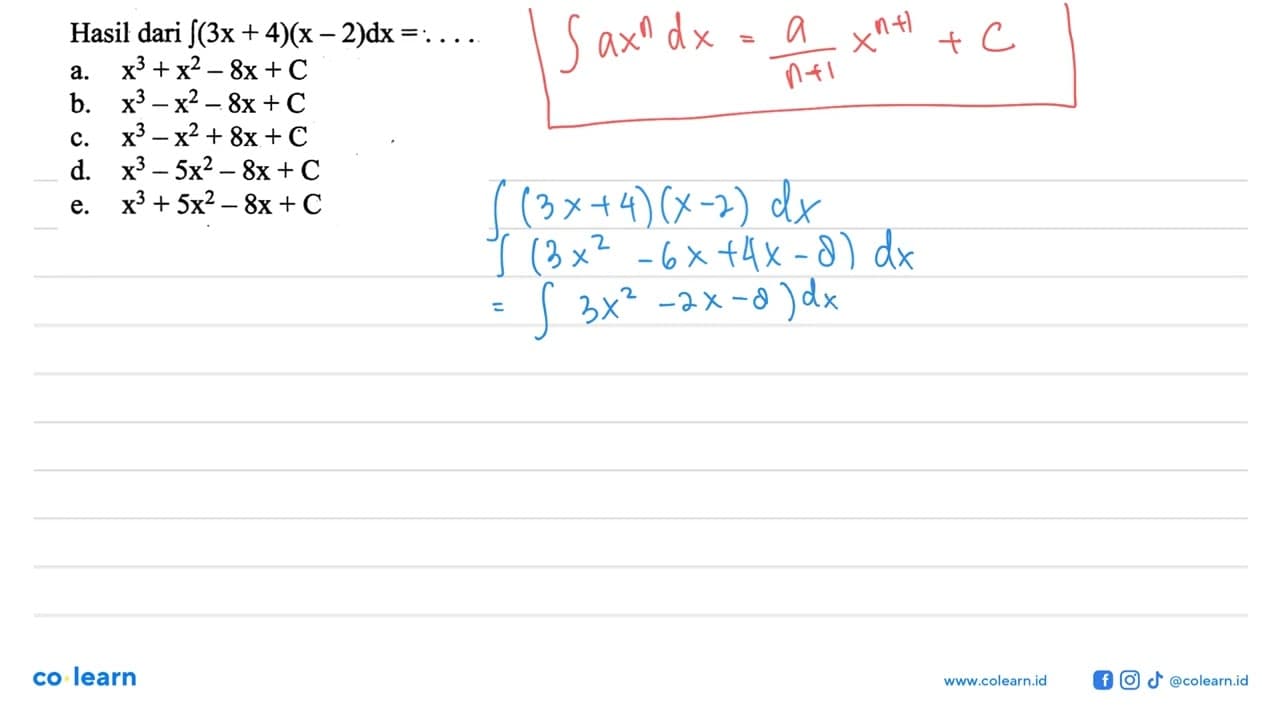 Hasil dari ∫(3x + 4)(x – 2)dx = . . . .
a. x³ + x² – 8x + C
b. x³ – x² – 8x + C
c. x³ – x² + 8x + C
d. x³ – 5x² – 8x + C
e. x³ + 5x² – 8x + C
∫ axⁿ dx = a/(n+1) xⁿ⁺¹ + C
∫ (3x+4)(x-2) dx
∫ (3x² -6x+4x-8) dx
= ∫ 3x² -2x-8) dx
co learn
www.colearn.id
@colearn.id